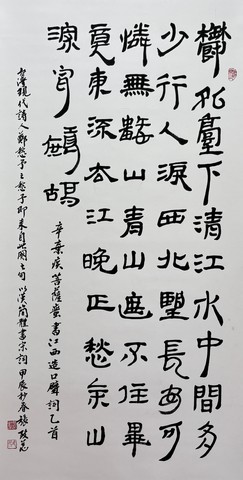 鬱孤臺下清江水中間多
少行人淚西北望長安可
憐無數山青山遮不住畢
竟東流去江晚正愁余山
深聞鷓鴣
辛棄疾菩薩蠻書江西造口壁詞乙首
台灣現代詩人鄭愁予之愁予即来自此闋之句 以漢簡體書宋詞 甲辰杪春